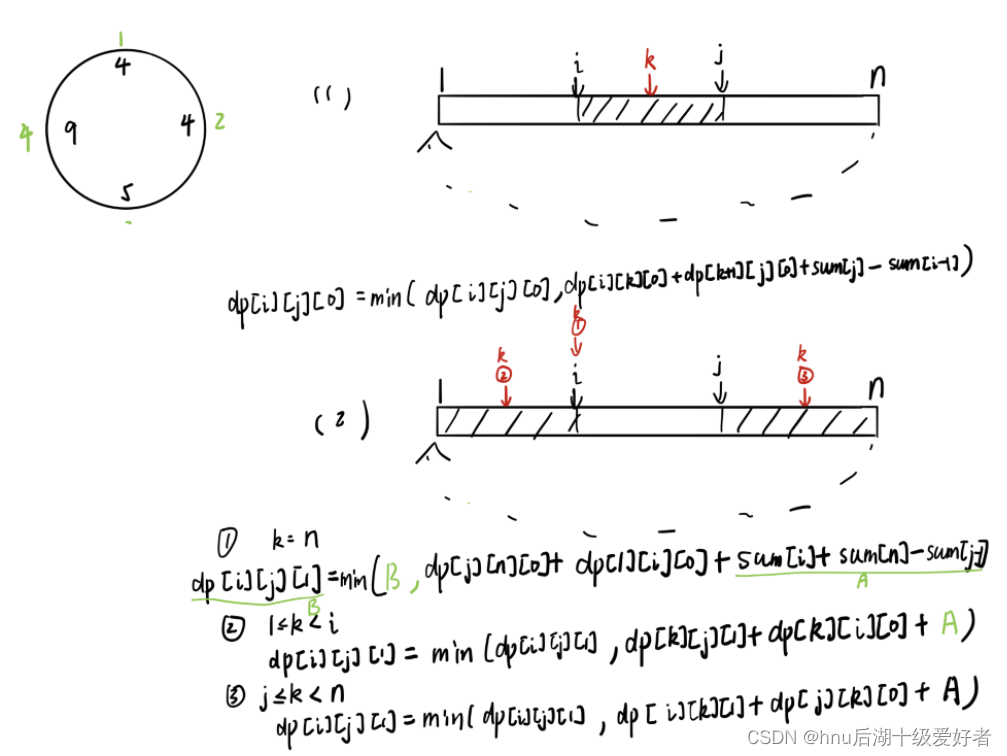 1
4
4 9 4 2
5
(1) 1 i k j n
dp[i][j][0] = min( dp[i][j][0], dp[i][k][0]+dp[k+1][j][0]+sum[j]-sum[i-1])
k
①
k k
② i j ③
(2) 1 n
① k=n
dp[i][j][1]=min(B, dp[j][n][0]+ dp[1][i][0]+sum[i]+sum[n]-sum[j-1]
B A
② 1≤k<i
dp[i][j][1]= min (dp[i][j][1], dp[k][j][1]+dp[k][i][0]+A)
③ j≤k<n
dp[i][j][1]=min( dp[i][j][1], dp[i][k][1]+dp[j][k][0]+A)
CSDN @hnu后湖十级爱好者